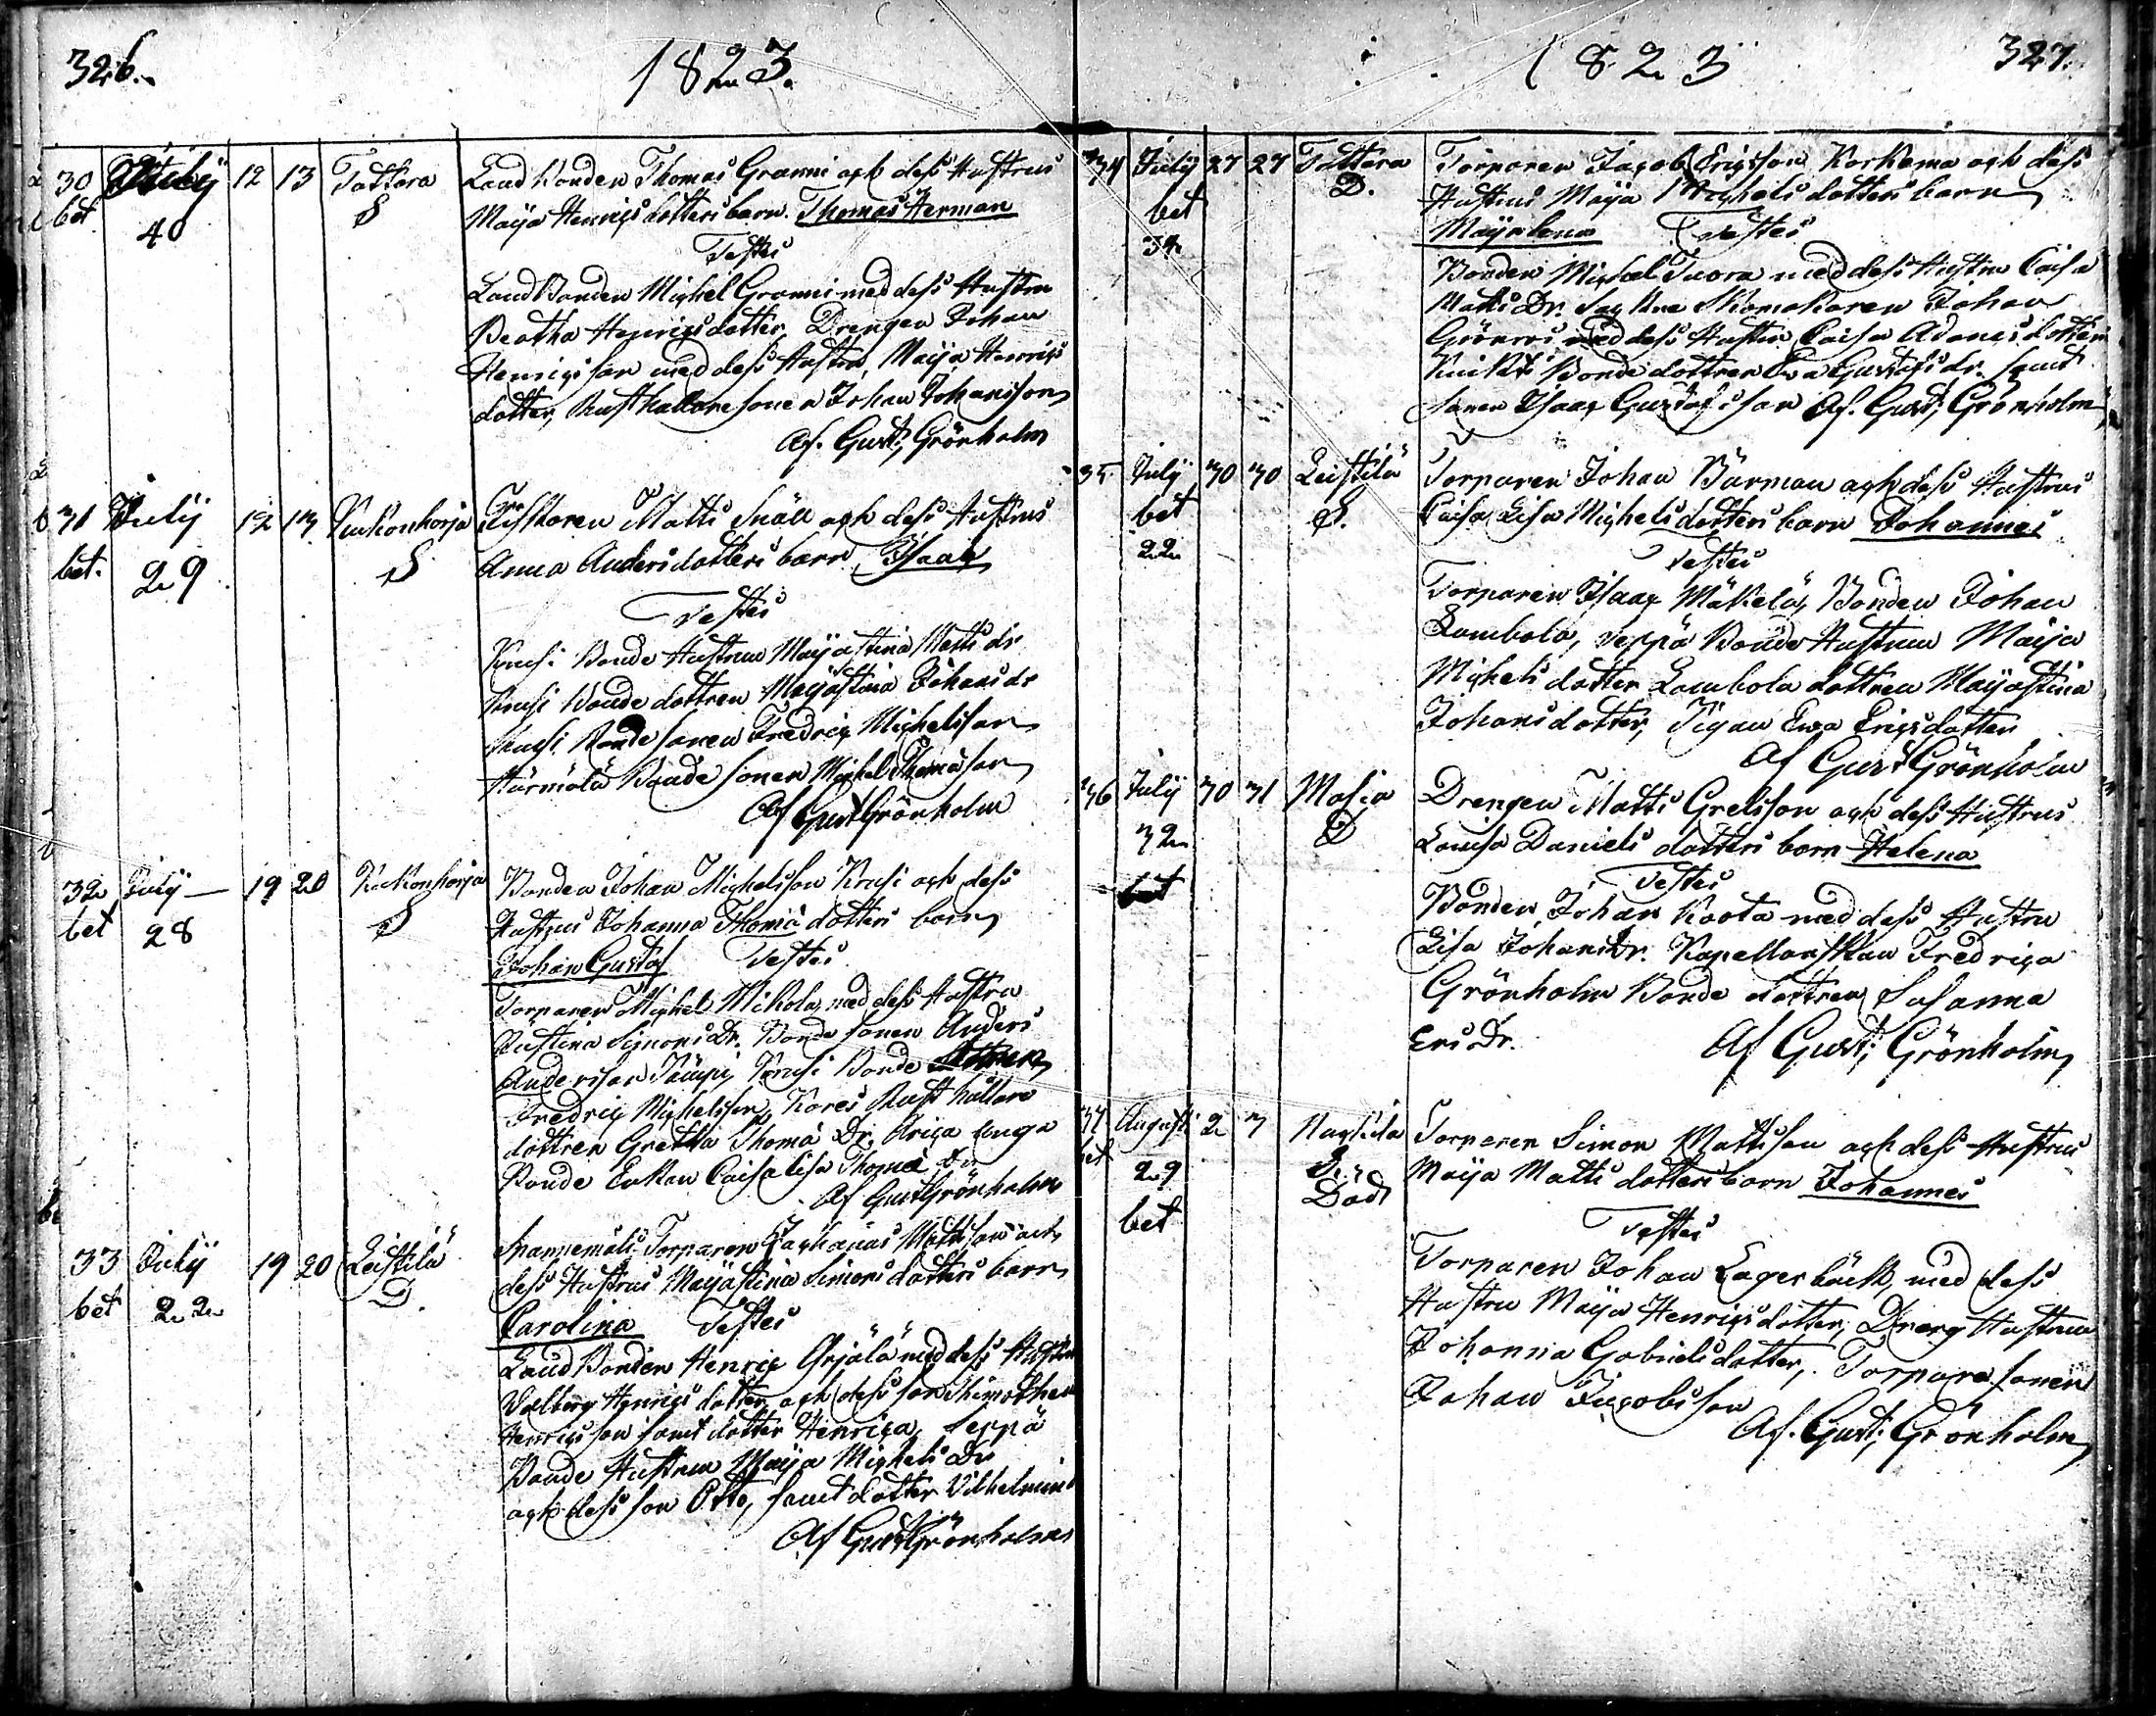 326.
1823.
30 July 12 13 Tattara Landbonden Thomas Granni och dess Hustrus
bet 40 S Maija Henrics dotters barn. Thomas Herman
Testes
Landbonden Michel Granni med dess Hustru
Beatha Henrics dotter, Drengen Johan
Henricsson med dess Hustru, Maija Henrics
dotter, Rusthållare sonen Johan Johansson
Af. Gust; Grönholm
31 July 12 13 Kuckonharja Matts Snäll och dess Hustrus
bet. 29 S Anna Anders dotters barn Isaac
Testes
Krusi Bonde Hustrun Maijastina Matts dr
Krusi Bonde dottren Maijastina Johans dr
Krusi Bonde sonen Fredric Michelsson
Härmälä Bonde sonen Michel Thomasson
Af Gust Grönholm
32 July 19 20 Kuckonharja Bonden Johan Michelsson Krusi och dess
bet 28 S Hustrus Johanna Thomä dotters barn
Johan Gustaf Testes
Torparen Michel Mikola med dess Hustru
Justina Simons Dr. Bonde sonen Anders
Andersson Krusi Bonde
Fredric Michelsson, Kares Rusthållare
dottren Gretha Thomä Dr,
Bonde Enkan Caisa Lisa Thomä Dr
Af Gust Grönholm
33 July 19 20 Leistilä Spannemåls Torparen Zacharias Mattsson och
bet 22 D. dess Hustrus Maijastina Simons dotters barn
Carolina Testes
Landbonden Henric Arjälä med dess Hustru
Valborg Henrics dotter och dess son Thimotheus
Henricsson samt dotter Henrica, Seppä
Bonde Hustrun Maija Michels Dr
och dess son Otto, samt dotter Vilhelmina
Af Gust Grönholm
1823
327.
34 July 27 27 Tattara Torparen Jacob Ericsson Korkema och dess
bet D. Hustrus Maija Michels dotters barn
34 Maijalena Testes
Bonden Michel Tuora med dess Hustru Caisa
Matts Dr. Skomakaren Johan
Grönroos med dess Hustru Caisa Adams dotter
Bonde dottren Eva Gustafs dr. samt
sonen Isaac Gustafsson Af. Gust; Grönholm
35 July 30 30 Leistilä Torparen Johan Bärman och dess Hustrus
bet S. Caisa Lisa Michels dotters barn Johannes
22 Testes
Torparen Isaac Mäkelä, Bonden Johan
Lambola, Seppä Bonde Hustrun Maija
Michels dotter Lambola dottren Maijastina
Johans dotter, Pigan Ewa Erics dotter
Af Gust Grönholm
36 July 30 31 Masia Drengen Matts Grelsson och dess Hustrus
32 D Lovisa Daniels dotters barn Helena
bet Testes
Bonden Johan Kaota med dess Hustru
Lisa Johans Dr. Kapellans Fredrica
Grönholm Bonde dottren Susanna
Ers Dr. Af Gust; Grönholm
37 August 2 3 Torparen Simon Mattsson och dess Hustrus
bet 29 S. Maija Matts dotters barn Johannes
bet Död Testes
Torparen Johan Lagerbäck, med dess
Hustru Maija Henrics dotter, Dreng Hustrun
Johanna Gabriels dotter, Torpare sonen
Johan Jacobsson
Af. Gust; Grönholm